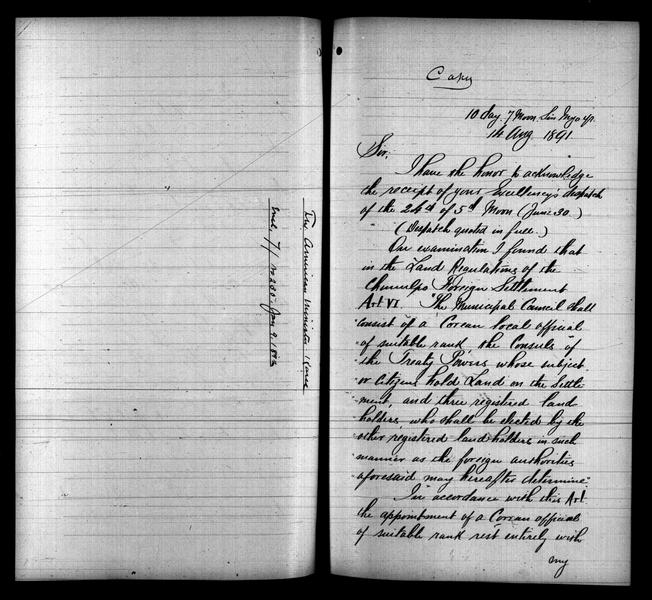 Copy
10 day. 7 Moon. Sin Myo yr.
14 Aug. 1891.
Sir,
I have the honor to acknowledge
the receipt of your Excellency's dispatch
of the 24th of 5th Moon (June 30.)
(Dispatch quoted in full.)
On examination I found that
in the Land Regulations of the
Chemulpo Foreign Settlement
Art VI. "The Municipal Council shall
consist of a Corean local official
of suitable rank the Consuls of
the Treaty Powers whose subject
or Citizens hold Land on the Settle-
ment, and three registered land
holders who shall be elected by the
other registered landholders in such
manner as the foreign authorities
aforesaid may hereafter determine"
In accordance with this Art.
the appointment of a Corean official
of suitable rank rest entirely with
my
American Minister
Encl. 7/ No 200. Jany 9.